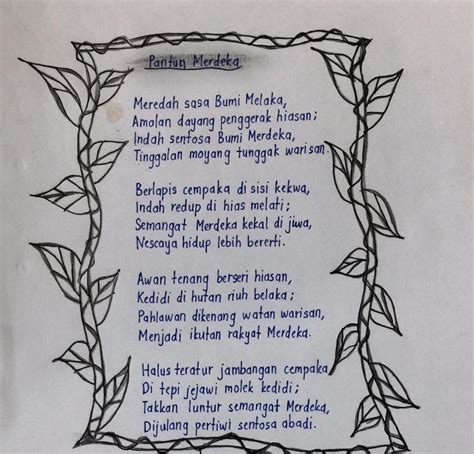 Pantun Merdeka
Meredah sasa Bumi Melaka,
Amalan dayang penggerak hiasan;
Indah sentosa Bumi Merdeka,
Tinggalan moyang tunggak warisan.
Berlapis cempaka di sisi kekwa,
Indah redup di hias melati;
Semangat Merdeka kekal di jiwa,
Nescaya hidup lebih bererti.
Awan tenang berseri hiasan,
Kedidi di hutan riuh belaka;
Pahlawan dikenang watan warisan,
Menjadi ikutan rakyat Merdeka.
Halus teratur jambangan cempaka,
Di tepi jejawi molek kedidi;
Takkan luntur semangat Merdeka,
Dijulang pertiwi sentosa abadi.